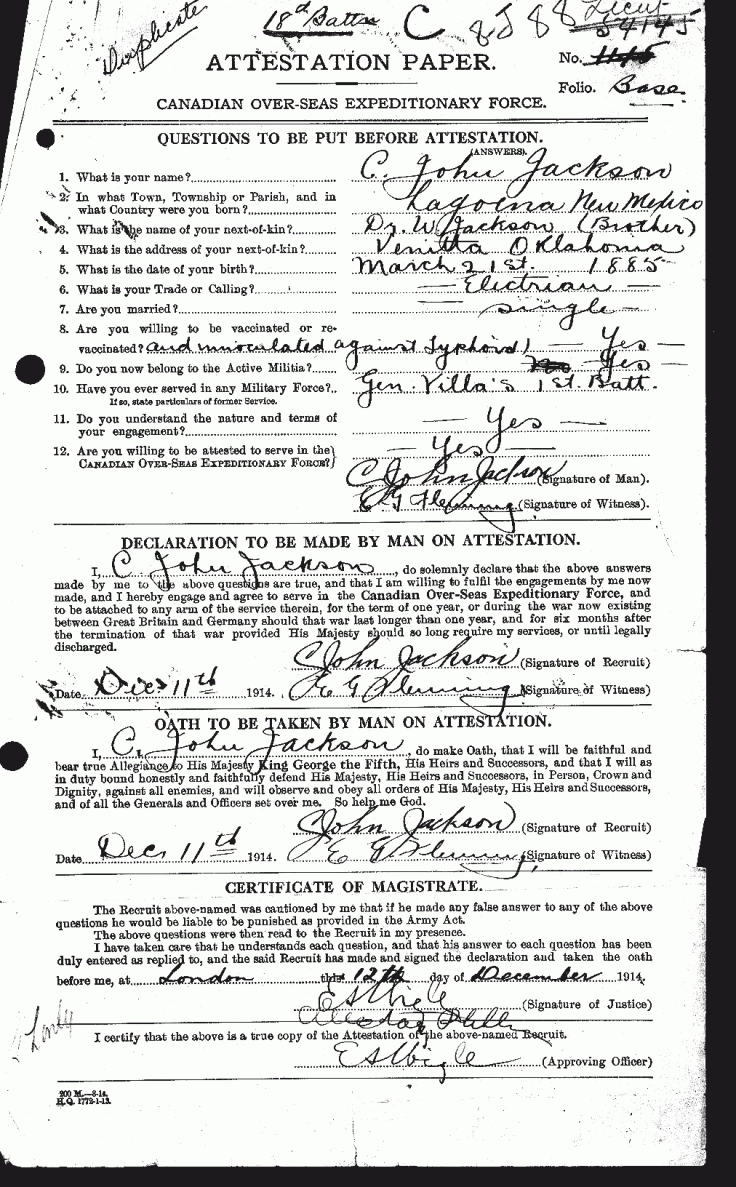 Duplicate
18th Battn C
Lieut
54145
No. 1145
Folio. Base
ATTESTATION PAPER.
CANADIAN OVER-SEAS EXPEDITIONARY FORCE.
QUESTIONS TO BE PUT BEFORE ATTESTATION.
(ANSWERS).
1. What is your name? C. John Jackson
2. In what Town, Township or Parish, and in
what Country were you born? Lagoena New Mexico
3. What is the name of your next-of-kin? Dr. W Jackson (Brother)
4. What is the address of your next-of-kin? Venitta Oklahoma
5. What is the date of your birth? March 21st. 1885
6. What is your Trade or Calling? — Electrian —
7. Are you married? — single —
8. Are you willing to be vaccinated or re-
vaccinated? and innoculated against Typhoid! — Yes —
9. Do you now belong to the Active Militia? — Yes —
10. Have you ever served in any Military Force? Gen. Villa's 1st. Batt.
If so, state particulars of former Service.
11. Do you understand the nature and terms of
your engagement? — Yes —
12. Are you willing to be attested to serve in the — Yes —
CANADIAN OVER-SEAS EXPEDITIONARY FORCE?
C John Jackson (Signature of Man).
E G Fleming (Signature of Witness).
DECLARATION TO BE MADE BY MAN ON ATTESTATION.
I, C. John Jackson, do solemnly declare that the above answers
made by me to the above questions are true, and that I am willing to fulfil the engagements by me now
made, and I hereby engage and agree to serve in the Canadian Over-Seas Expeditionary Force, and
to be attached to any arm of the service therein, for the term of one year, or during the war now existing
between Great Britain and Germany should that war last longer than one year, and for six months after
the termination of that war provided His Majesty should so long require my services, or until legally
discharged.
C John Jackson (Signature of Recruit)
Date Dec 11th 1914. E G Fleming (Signature of Witness)
OATH TO BE TAKEN BY MAN ON ATTESTATION.
I, C. John Jackson, do make Oath, that I will be faithful and
bear true Allegiance to His Majesty King George the Fifth, His Heirs and Successors, and that I will as
in duty bound honestly and faithfully defend His Majesty, His Heirs and Successors, in Person, Crown and
Dignity, against all enemies, and will observe and obey all orders of His Majesty, His Heirs and Successors,
and of all the Generals and Officers set over me. So help me God.
C John Jackson (Signature of Recruit)
Date Dec 11th 1914. E G Fleming (Signature of Witness)
CERTIFICATE OF MAGISTRATE.
The Recruit above-named was cautioned by me that if he made any false answer to any of the above
questions he would be liable to be punished as provided in the Army Act.
The above questions were then read to the Recruit in my presence.
I have taken care that he understands each question, and that his answer to each question has been
duly entered as replied to, and the said Recruit has made and signed the declaration and taken the oath
before me, at London this 12th day of December 1914.
(Signature of Justice)
I certify that the above is a true copy of the Attestation of the above-named Recruit.
(Approving Officer)
200 M.—8-14.
H.Q. 1772-1-13.